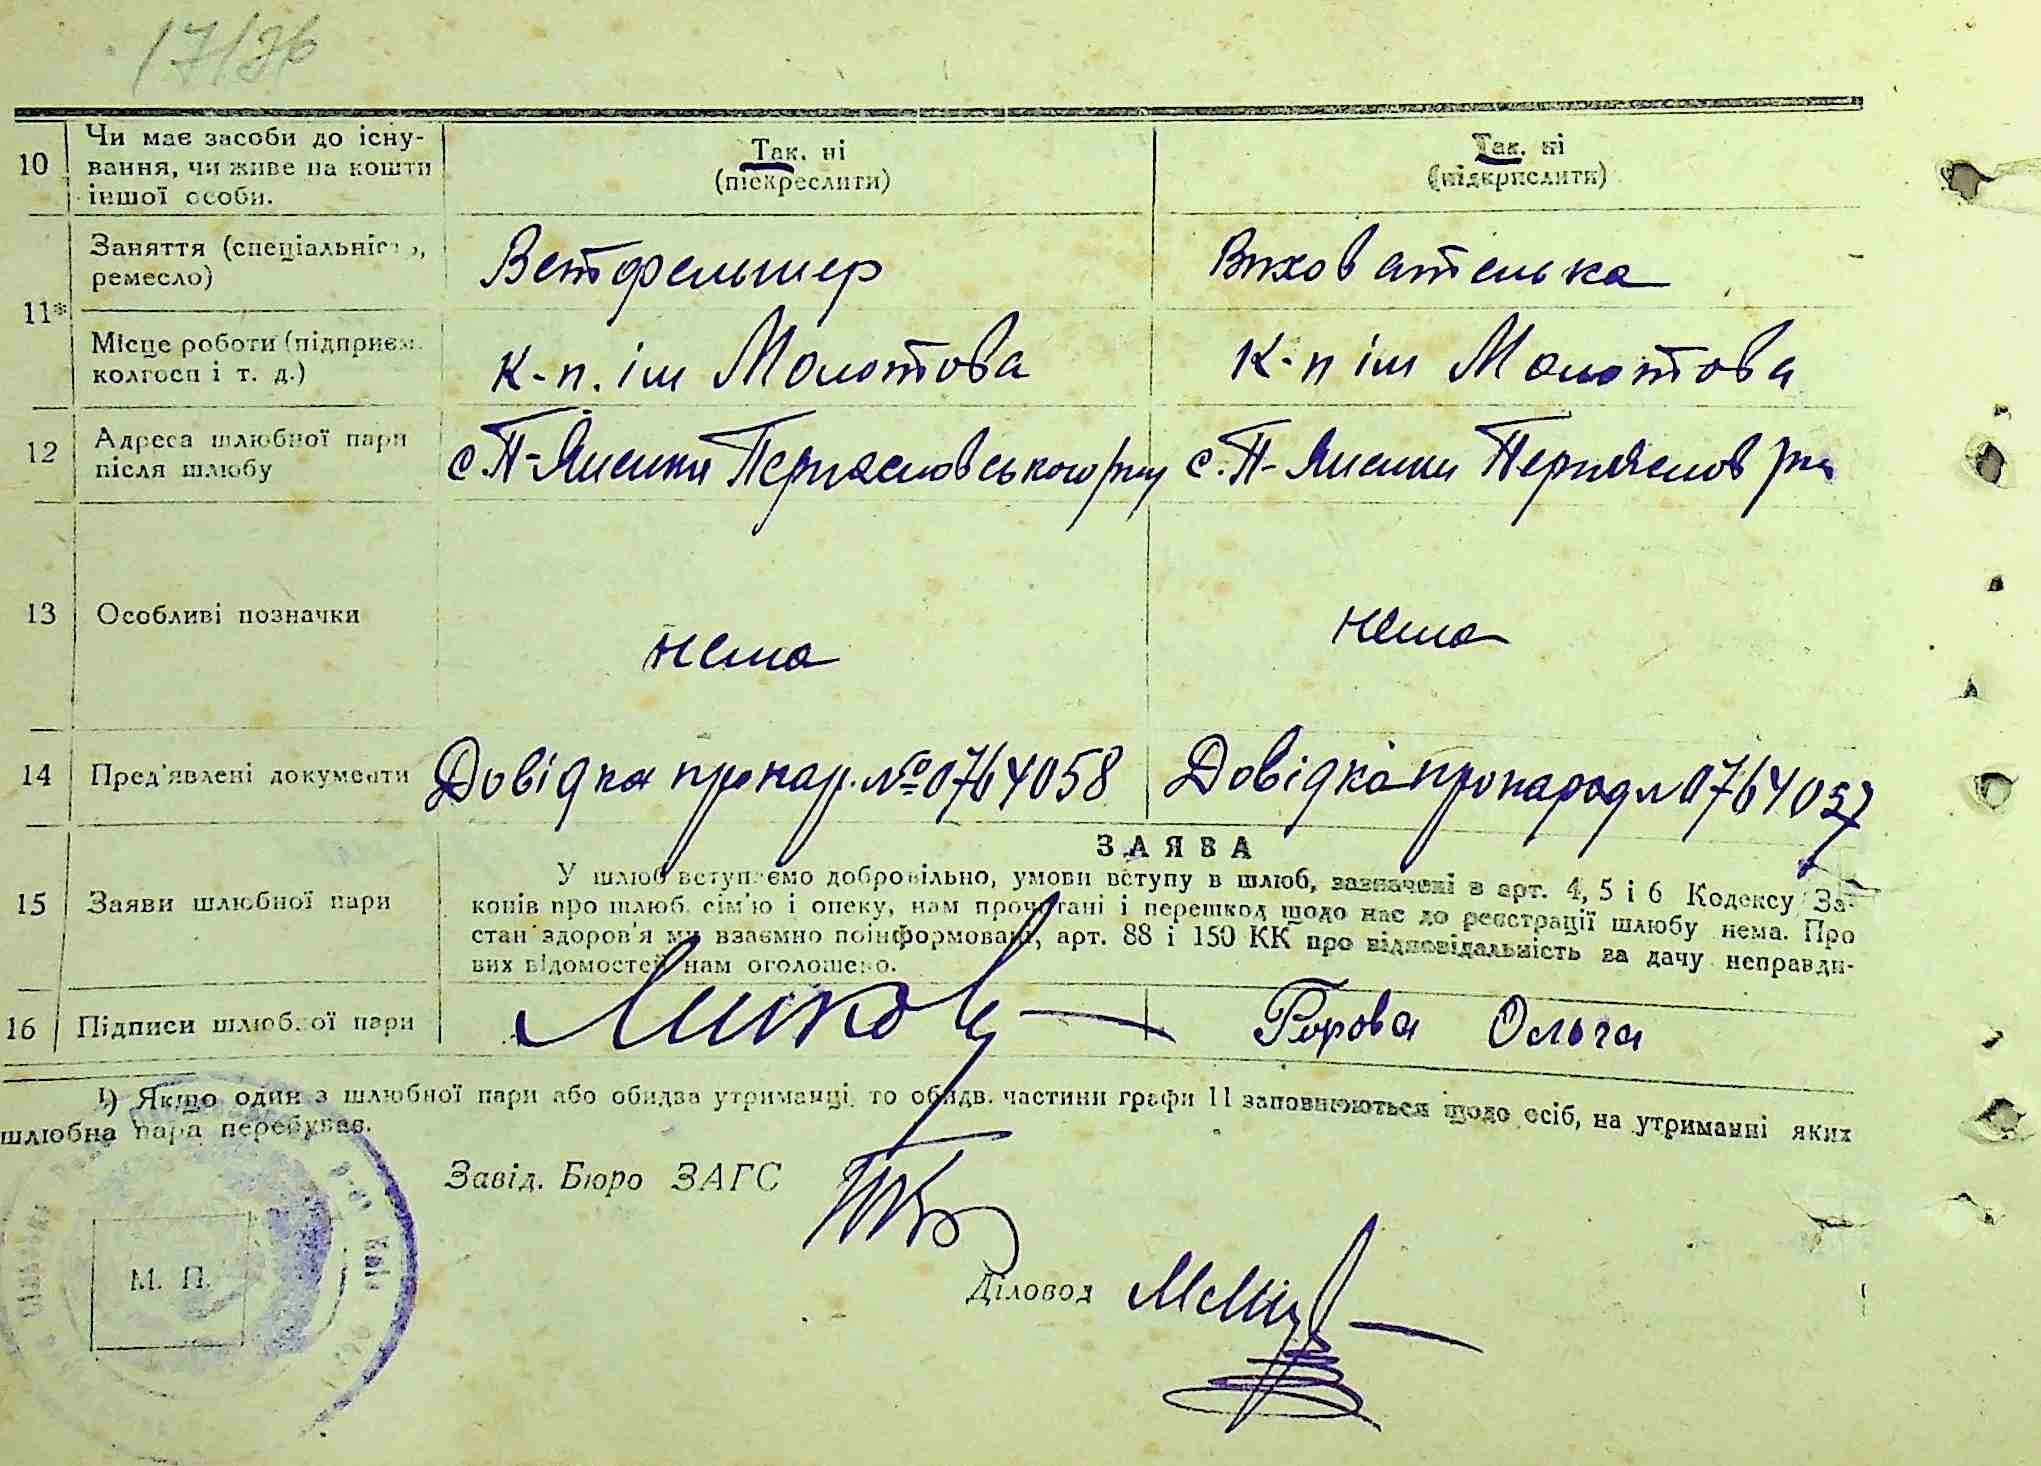 17/36
10
Чи має засоби до існу-
вання, чи живе на кошти
іншої особи.
Так. ні
(піскреслити)
Так. ні
(підкрислити)
11*
Заняття (спеціальність,
ремесло)
Ветфельшер
Вихователька
Місце роботи (підприєм.
колгосп і т. д.)
к-п. ім Молотова
к-п ім Молотова
12
Адреса шлюбної пари
після шлюбу
с. П-
с. П-
13
Особливі позначки
нема
нема
14
Пред'явлені документи
Довідка про нар. № 0764058
Довідка про народ 0764057
15
Заяви шлюбної пари
ЗАЯВА
У шлюб вступаємо добровільно, умови вступу в шлюб, зазначені в арт. 4, 5 і 6 Кодексу За-
конів про шлюб, сім'ю і опеку, нам прочитані і перешкод щодо нас до реєстрації шлюбу нема. Про
стан здоров'я ми взаємно поінформовані, арт. 88 і 150 КК про відповідальність за дачу неправди-
вих відомостей нам оголошено.
16
Підписи шлюбної пари
Ольга
1) Якщо один з шлюбної пари або обидва утриманці, то обидв. частини графи 11 заповнюються щодо осіб, на утриманні яких
шлюбна пара перебуває.
Завід. Бюро ЗАГС
М. П.
Діловод